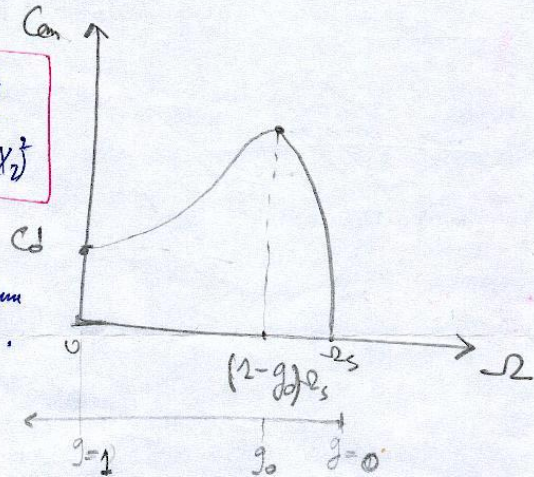 Cem
X₂)²
Cd
0
(1-g₀)Ωs
Ωs
Ω
g=1
g₀
g=0